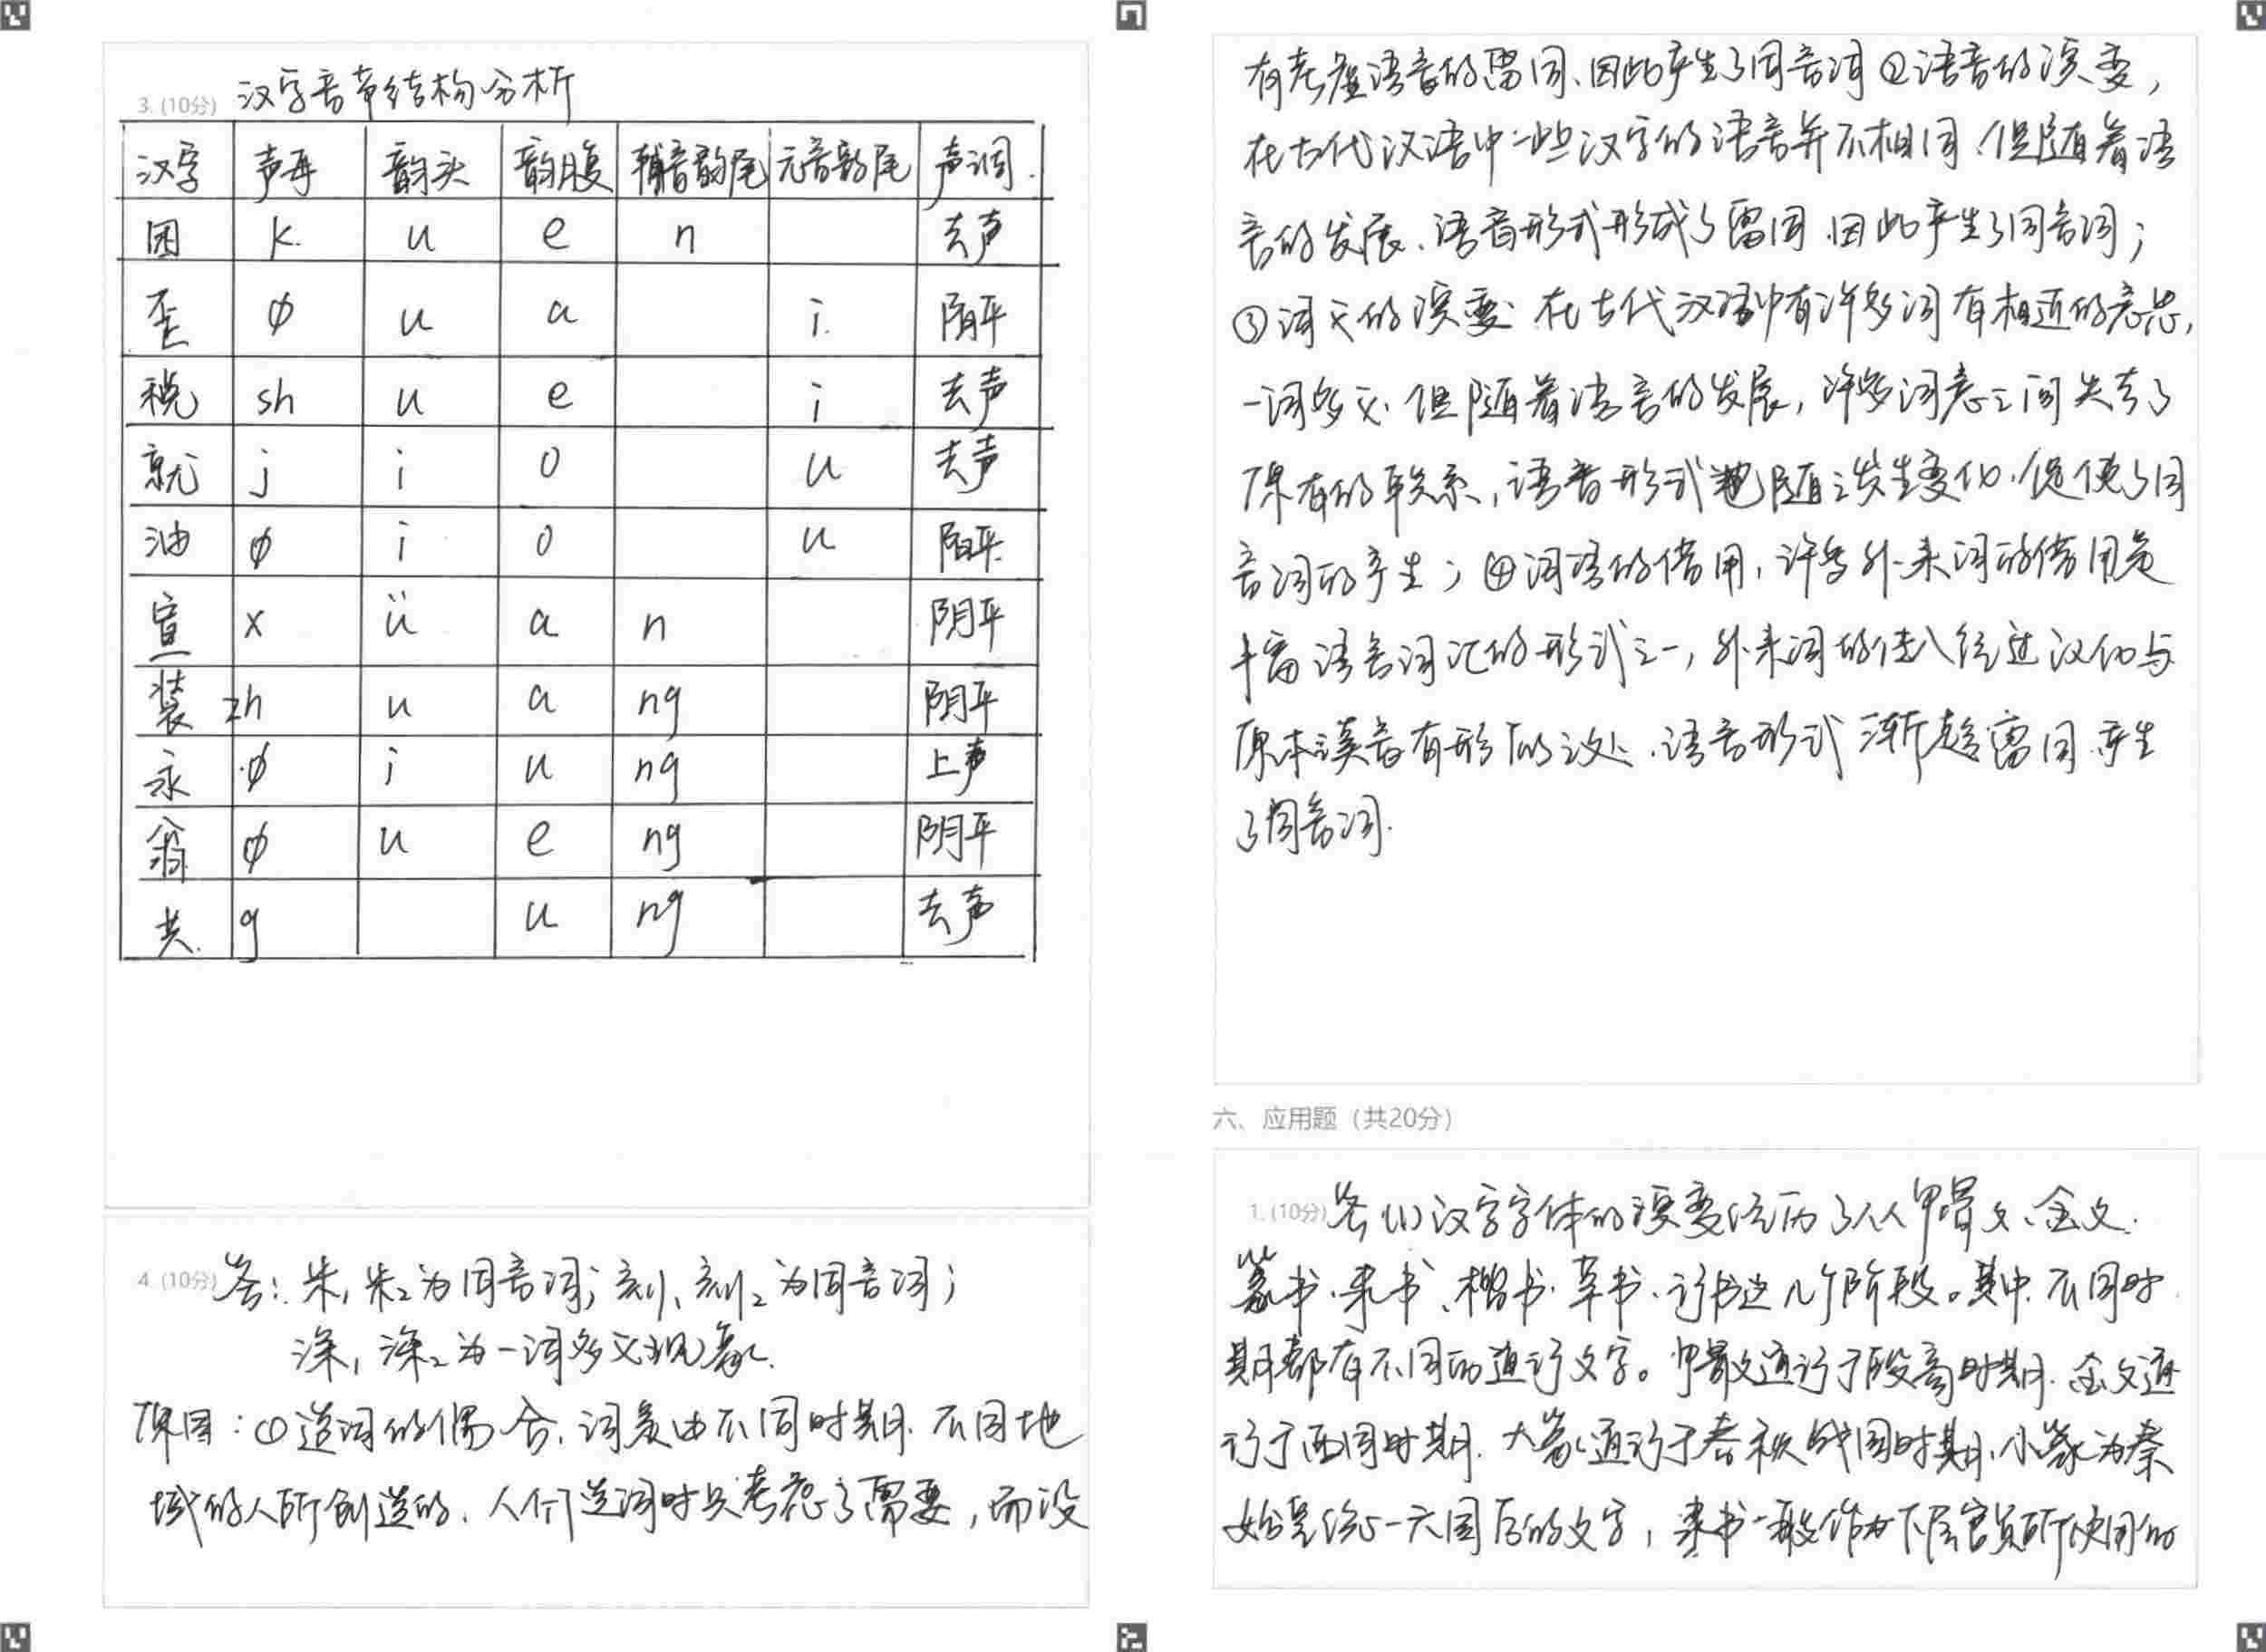 3. (10分) 汉字音节结构分析
汉字 声母 韵头 韵腹 辅音韵尾 元音韵尾 声调
困 k u e n 去声
歪 ∅ u a i 阴平
税 sh u e i 去声
就 j i o u 去声
油 ∅ i o u 阳平
宣 x ü a n 阴平
装 zh u a ng 阴平
永 ∅ i u ng 上声
翁 ∅ u e ng 阴平
共 g u ng 去声
4. (10分) 答: 朱₁ 朱₂为同音词; 刻₁、刻₂为同音词;
深₁, 深₂为一词多义现象.
原因: ①造词的偶合, 词是由不同时期、不同地
域的人所创造的、人们造词时只考虑了需要, 而没
有考虑语音的雷同、因此产生了同音词②语音的演变,
在古代汉语中一些汉字的语音并不相同、但随着语
言的发展、语音形式形成了雷同.因此产生了同音词;
③词义的演变 在古代汉语中有许多词有相近的意思,
一词多义、但随着语言的发展, 许多词意之间失去了
原有的联系, 语音形式也随之发生变化、促使了同
音词的产生; ④词语的借用, 许多外来词的借用是
丰富语言词汇的形式之一, 外来词的传入经过汉化与
原本汉音有形似之处、语音形式渐趋雷同.产生
了同音词.
六、应用题 (共20分)
1. (10分) 答 (1) 汉字字体的演变经历了从甲骨文、金文.
篆书、隶书、楷书、草书、行书这几个阶段。其中.不同时
期都有不同的通行文字。甲骨文通行于殷商时期. 金文通
行于西周时期. 大篆通行于春秋战国时期、小篆为秦
始皇统一六国后的文字, 隶书一般作为下层官员所使用的